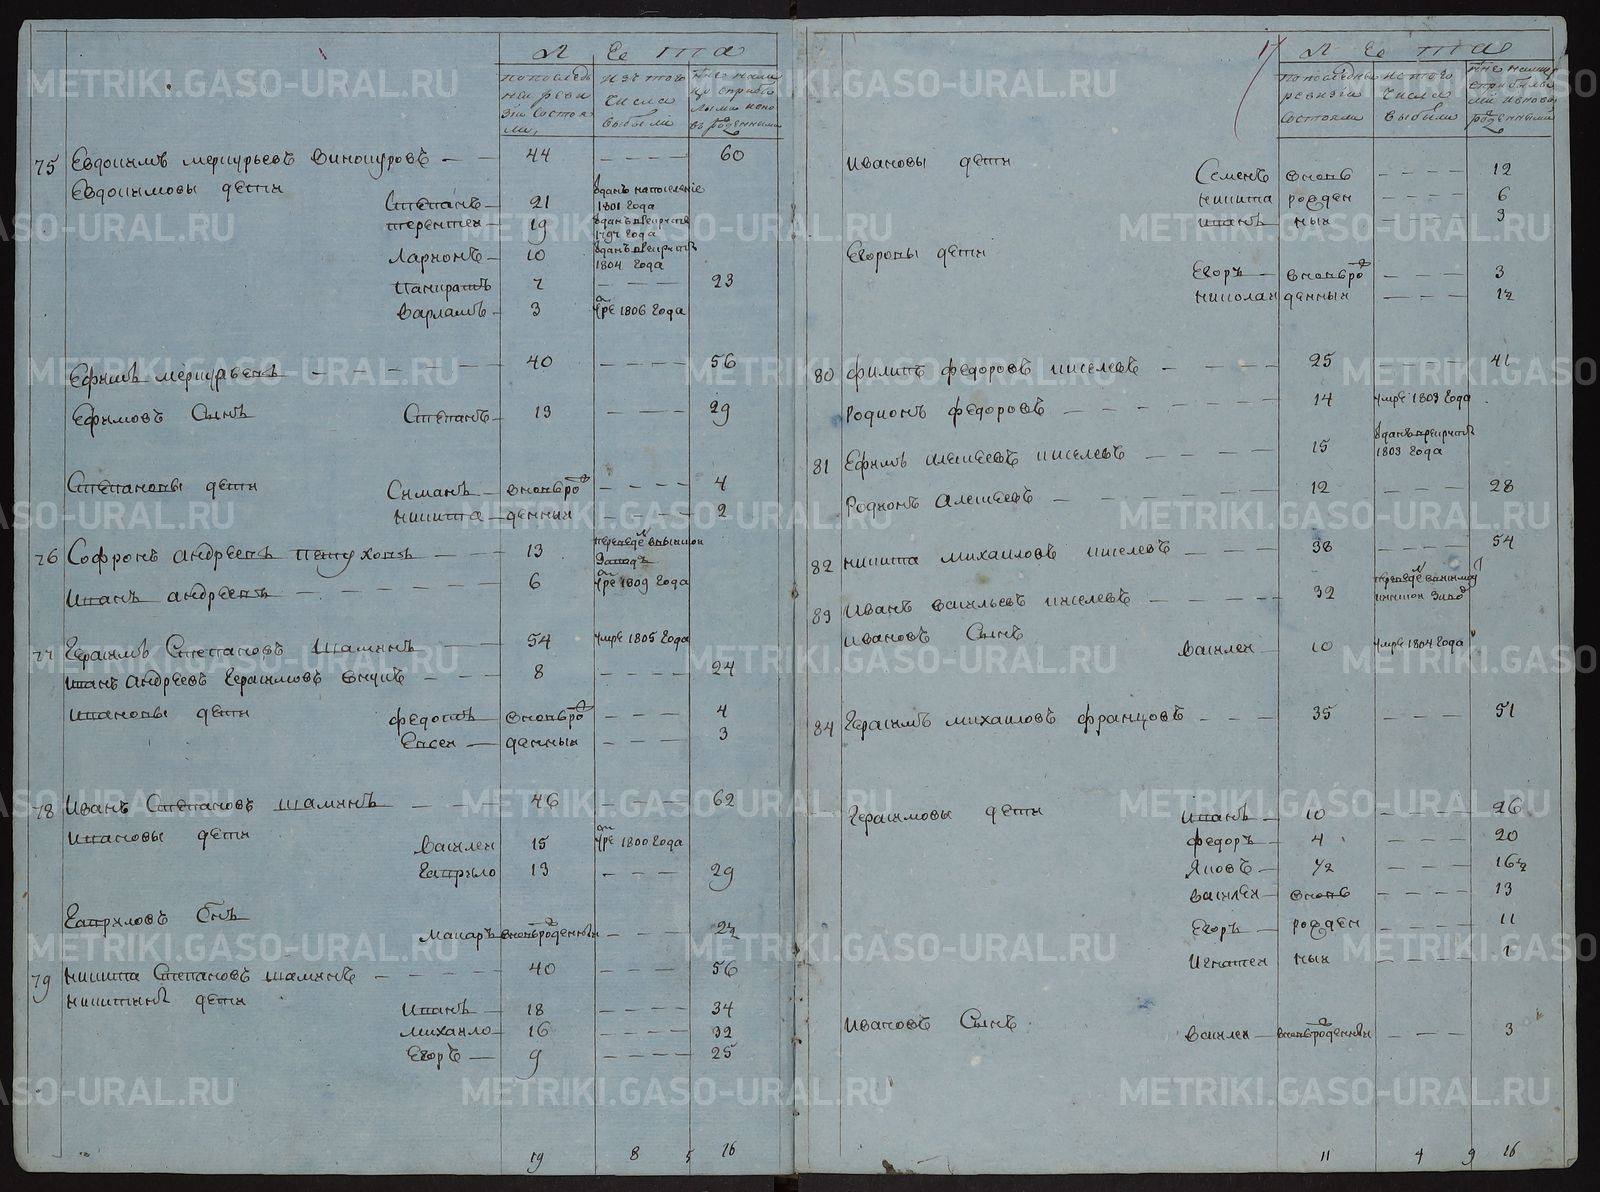 Лета
по последней ревизии состояли,
из того числа выбыли
ныне на лицо с прибылыми и вновь рожденными
75 Евдокимъ меркурьевъ винокуровъ — 44 - - - - 60
Евдокимовы дети
Степанъ — 21 вданъ на поселение 1801 года
терентей — 19 вданъ в рекруты 1797 года
Ларионъ — 10 вданъ в рекруты 1804 года
панкратъ 7 - - - 23
варламъ — 3 умре 1806 года
Ефимъ меркурьевъ - - - - 40 - - - - 56
Ефимовъ Сынъ Степанъ — 13 - - - - 29
Степановы дети Симанъ — вновь ро - - - - 4
никита — жденныя - - - - 2
76 Софронъ андреевъ петуховъ — 13 переведенъ в
заводъ
иванъ андреевъ - - - - 6 умре 1809 года
77 Герасимъ Степановъ Шаминъ — 54 умре 1805 года
иванъ андреевъ Герасимовъ внукъ — 8 - - - - 24
ивановы дети федотъ — вновь ро - - - 4
Евсей — жденныя - - - 3
78 Иванъ Степановъ шаминъ — 46 - - - - 62
ивановы дети
василей 15 умре 1800 года
Гаврило 13 - - - - 29
Гавриловъ Снъ
макаръ вновьрожденный - - - 2½
79 никита Степановъ шаминъ — 40 - - - - 56
никитины дети
иванъ — 18 - - - - 34
михайло — 16 - - - - 32
Егоръ — 9 - - - - 25
19 8 5 16
17
Лета
по последней ревизии состояли
ис того числа выбыли
ныне на лицо с прибылыми и вновь рожденными
Ивановы дети
Семенъ вновь - - - - 12
никита рожден - - - - 6
иванъ ныя - - - - 3
Егоровы дети
Егоръ — вновь ро - - - - 3
николай жденныя - - - - 1½
80 филипъ федоровъ киселевъ — 25 - - - - 41
Родионъ федоровъ - - - - 14 умре 1803 года
81 Ефимъ алексеевъ киселевъ - - - - 15 вданъ в рекруты 1803 года
Родионъ алексеевъ — 12 - - - 28
82 никита михаиловъ киселевъ — 38 - - - - 54
83 Иванъ васильевъ киселевъ — 32 переведенъ в
завод
ивановъ Сынъ
василей 10 умре 1804 года
84 Герасимъ михаиловъ францовъ - - - 35 - - - 51
Герасимовы дети
иванъ 10 - - - - 26
федоръ — 4 - - - - 20
Яковъ — ½ - - - - 16½
василей — вновь - - - - 13
Егоръ — рожден - - - - 11
Игнатей ныя - - - - 1
ивановъ Сынъ
василей — вновьрожденный - - - 3
11 4 9 16
METRIKI.GASO-URAL.RU